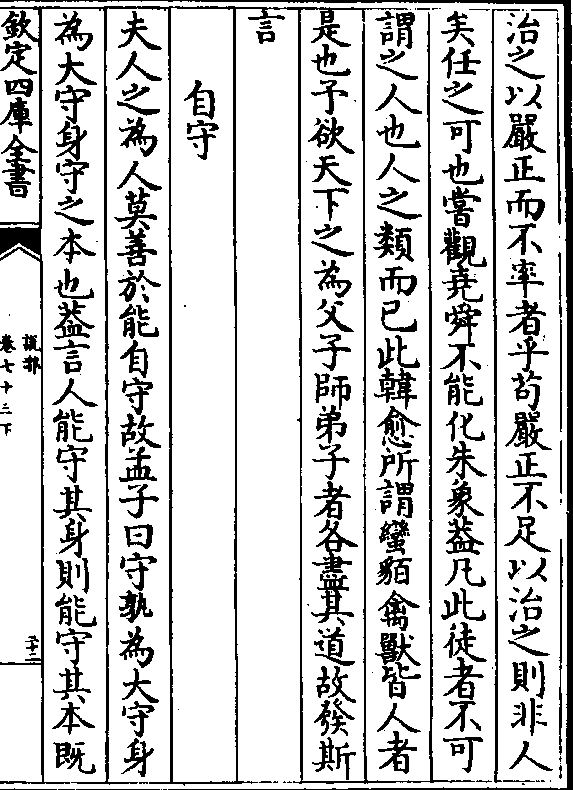 治之以嚴正而不率者乎苟嚴正不足以治之則非人
矣任之可也嘗觀堯舜不能化朱象葢凡此徒者不可
謂之人也人之類而已此韓愈所謂蠻貊禽獸皆人者
是也予欲天下之為父子師弟子者各盡其道故發斯
言
自守
夫人之為人莫善於能自守故孟子曰守孰為大守身
為大守身守之本也葢言人能守其身則能守其本既
欽定四庫全書
説郛
卷七十三下